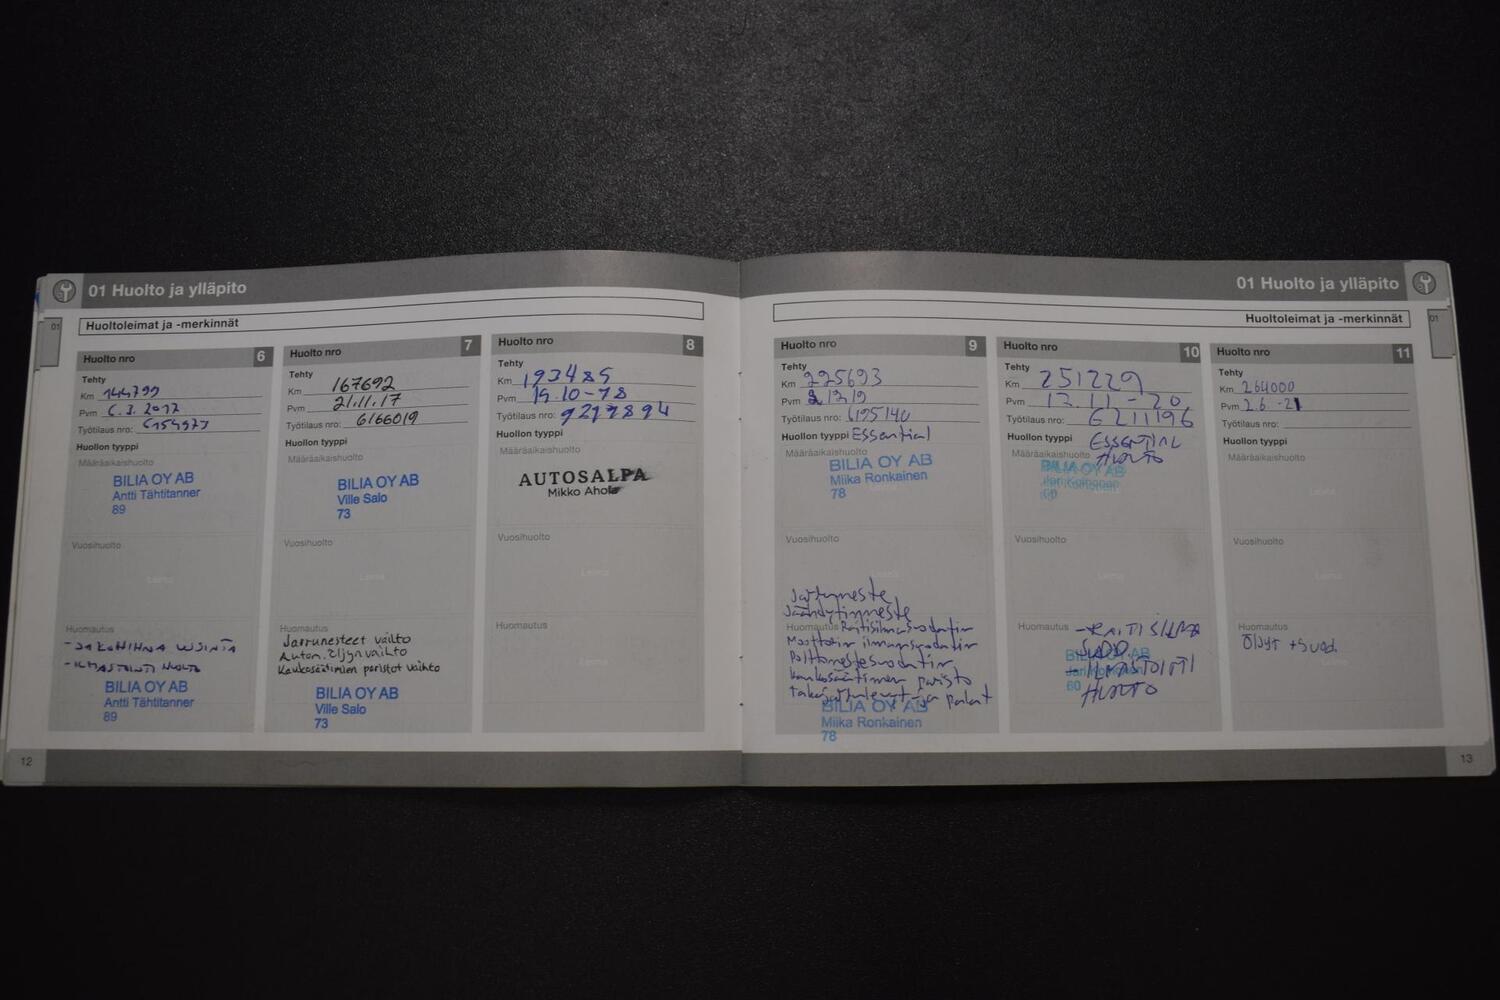 01 Huolto ja ylläpito
01
Huoltoleimat ja -merkinnät
Huolto nro 6
Tehty
Km 144799
Pvm 6.3.2017
Työtilaus nro: 6154973
Huollon tyyppi
Määräaikaishuolto
BILIA OY AB
Antti Tähtitanner
89
Vuosihuolto
Leima
Huomautus
- JAKOHIHNA UUSINTA
- ILMASTOINTI HUOLTO
BILIA OY AB
Antti Tähtitanner
89
Huolto nro 7
Tehty
Km 167692
Pvm 21.11.17
Työtilaus nro: 6166019
Huollon tyyppi
Määräaikaishuolto
BILIA OY AB
Ville Salo
73
Vuosihuolto
Leima
Huomautus
Jarrunesteet vaihto
Autom. öljyn vaihto
Kaukosäätimien paristot vaihto
BILIA OY AB
Ville Salo
73
Huolto nro 8
Tehty
Km 193485
Pvm 15.10-18
Työtilaus nro: 9217894
Huollon tyyppi
Määräaikaishuolto
AUTOSALPA
Mikko Ahola
Vuosihuolto
Leima
Huomautus
12
01 Huolto ja ylläpito
01
Huoltoleimat ja -merkinnät
Huolto nro 9
Tehty
Km 225693
Pvm
Työtilaus nro: 6195140
Huollon tyyppi Essential
Määräaikaishuolto
BILIA OY AB
Miika Ronkainen
78
Vuosihuolto
Leima
Jarruneste
Jäähdytinneste
Huomautus Raitisilmasuodatin
Moottorin ilmansuodatin
Polttonestesuodatin
kaukosäätimen paristo
takajarrulevyt ja palat
BILIA OY AB
Miika Ronkainen
78
Huolto nro 10
Tehty
Km 251229
Pvm 12.11-20
Työtilaus nro: 6211196
Huollon tyyppi ESSENTIAL
Määräaikaishuolto HUOLTO
BILIA OY AB
60
Vuosihuolto
Leima
Huomautus - RAITISILMA
SUOD.
BILIA OY AB
- ILMASTOINTI
60
HUOLTO
Huolto nro 11
Tehty
Km 264000
Pvm 2.6-21
Työtilaus nro:
Huollon tyyppi
Määräaikaishuolto
Leima
Vuosihuolto
Leima
Huomautus
Öljyt + Suod.
13